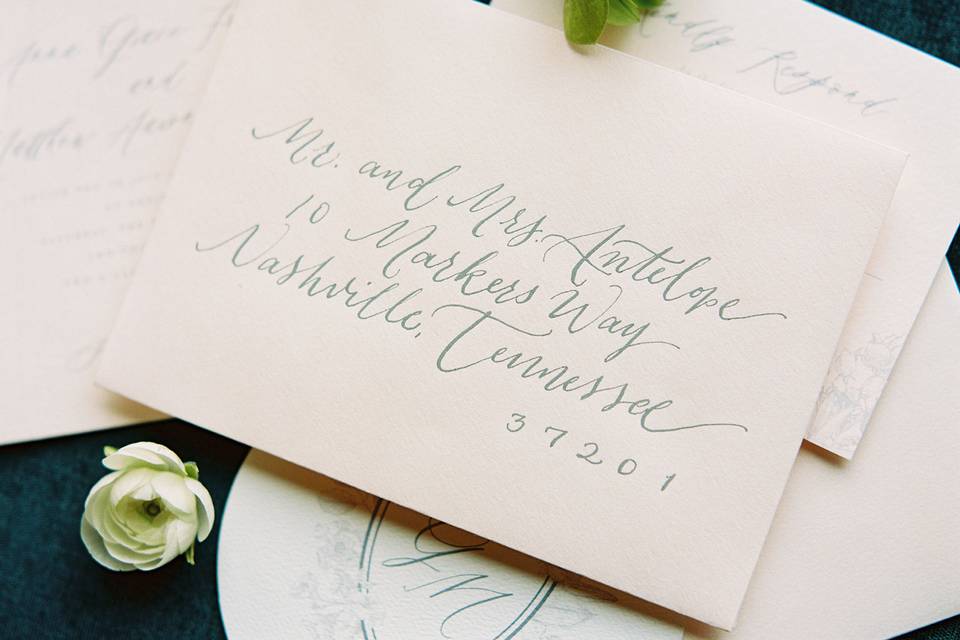 Kindly Respond
Mr. and Mrs. Antelope
10 Markers Way
Nashville, Tennessee
37201
and
GM